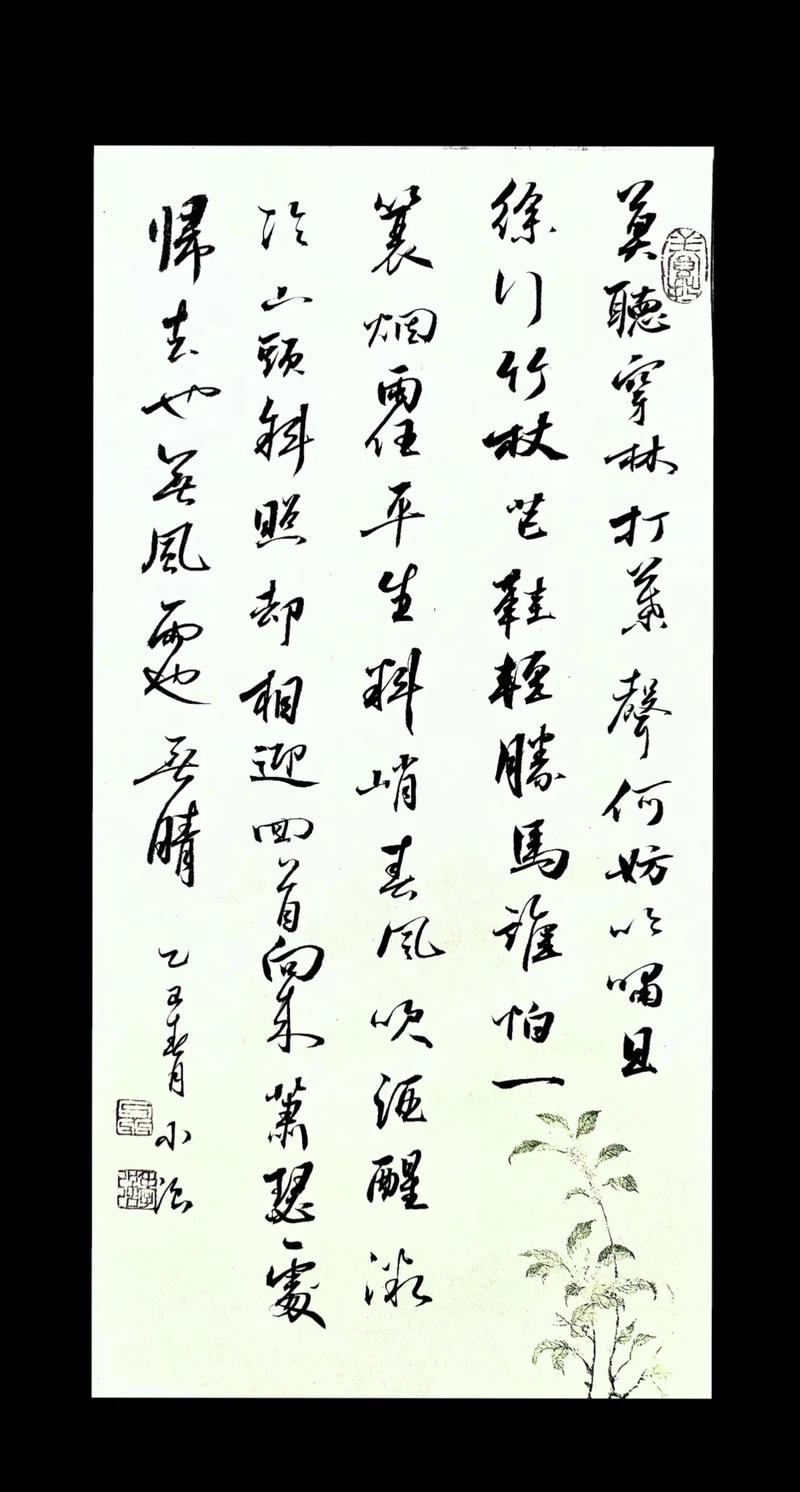 莫聴穿林打葉聲何妨吟嘯且
徐行竹杖芒鞋輕勝馬誰怕一
蓑烟雨任平生料峭春風吹酒醒微
冷山頭斜照却相迎回首向来蕭瑟處
帰去也無風雨也無晴
乙巳春月小